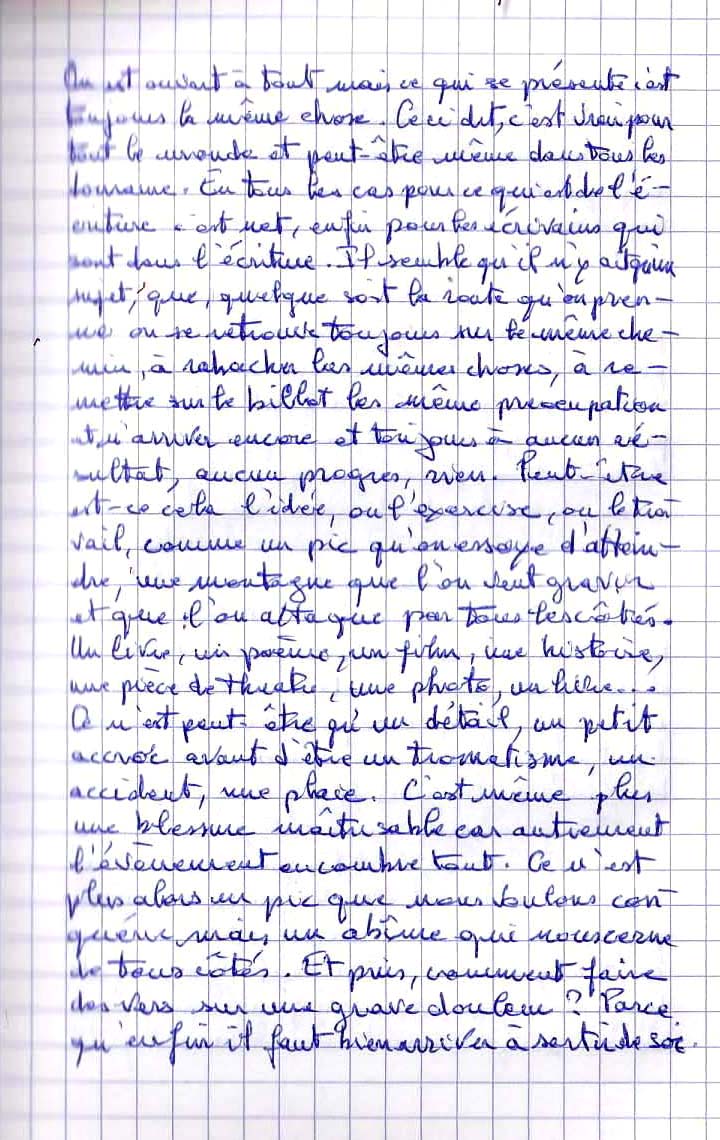 On est ouvert à tout mais ce qui se présente c'est
toujours la même chose. Ceci dit, c'est vrai pour
tout le monde et peut-être même dans tous les
domaine. En tous les cas pour ce qui est de l'é-
criture c'est net, enfin pour les écrivains qui
sont dans l'écriture. Il semble qu'il n'y ait qu'un
sujet, que, quelque soit la route qu'on pren-
ne on se retrouve toujours sur le même che-
min, à rabacher les mêmes choses, à re-
mettre sur le billot les même préocupation
et n'arriver encore et toujours à aucun ré-
sultat, aucun progres, rien. Peut-être
est-ce cela l'idée, ou l'exercise, ou le tra
vail, comme un pic qu'on essaye d'attein-
dre, une montagne que l'on veut gravir
et que l'on attaque par tous les côtés.
Un livre, un poème, un film, une histoire,
une pièce de theatre, une photo, un ...
Ce n'est peut-être qu'un détail, un petit
accroc avant d'être un tromatisme, un
accident, une plaie. C'est même plus
une blessure maîtrisable car autrement
l'évènement encombre tout. Ce n'est
plus alors un pic que nous voulons con
quérir mais un abîme qui nous cerne
de tous côtés. Et puis, comment faire
des vers sur une grave douleur ? Parce
qu'enfin il faut bien arriver à sortir de soi.